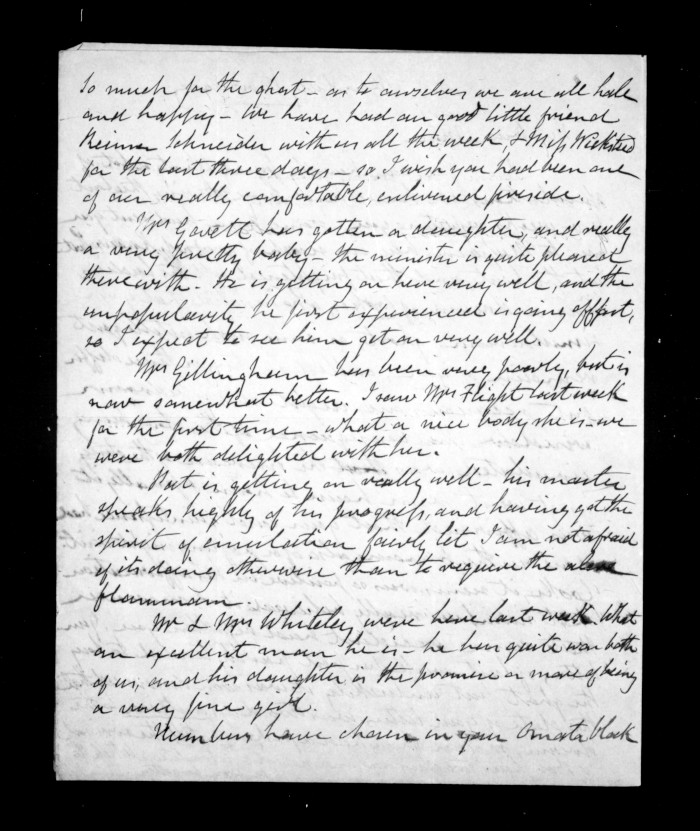 So much for the ghost – as to ourselves we are all hale
and happy – We have had our good little friend
Schneider with us all the week, & Miss Wicksteed
for the last three days – so I wish you had been one
of our really comfortable, enlivened fireside.
Mrs Govett has gotten a daughter, and really
a very pretty baby – the minister is quite pleased
therewith. He is getting on here very well, and the
unpopularity he first experienced is going off fast,
so I expect to see him get on very well.
Mrs Gillingham has been very poorly, but is
now somewhat better. I saw Mrs Flight last week
for the first time – what a nice body she is – we
were both delighted with her.
Pat is getting on really well – his master
speaks highly of his progress, and having got the
spirit of emulation fairly lit I am not afraid
of its doing otherwise than to require the
flammam.
Mr & Mrs Whiteley were here last week. What
an excellent man he is – he has quite won both
of us, and his daughter is the promise or more of being
a very fine girl.
Numbers have chosen in your Omata block